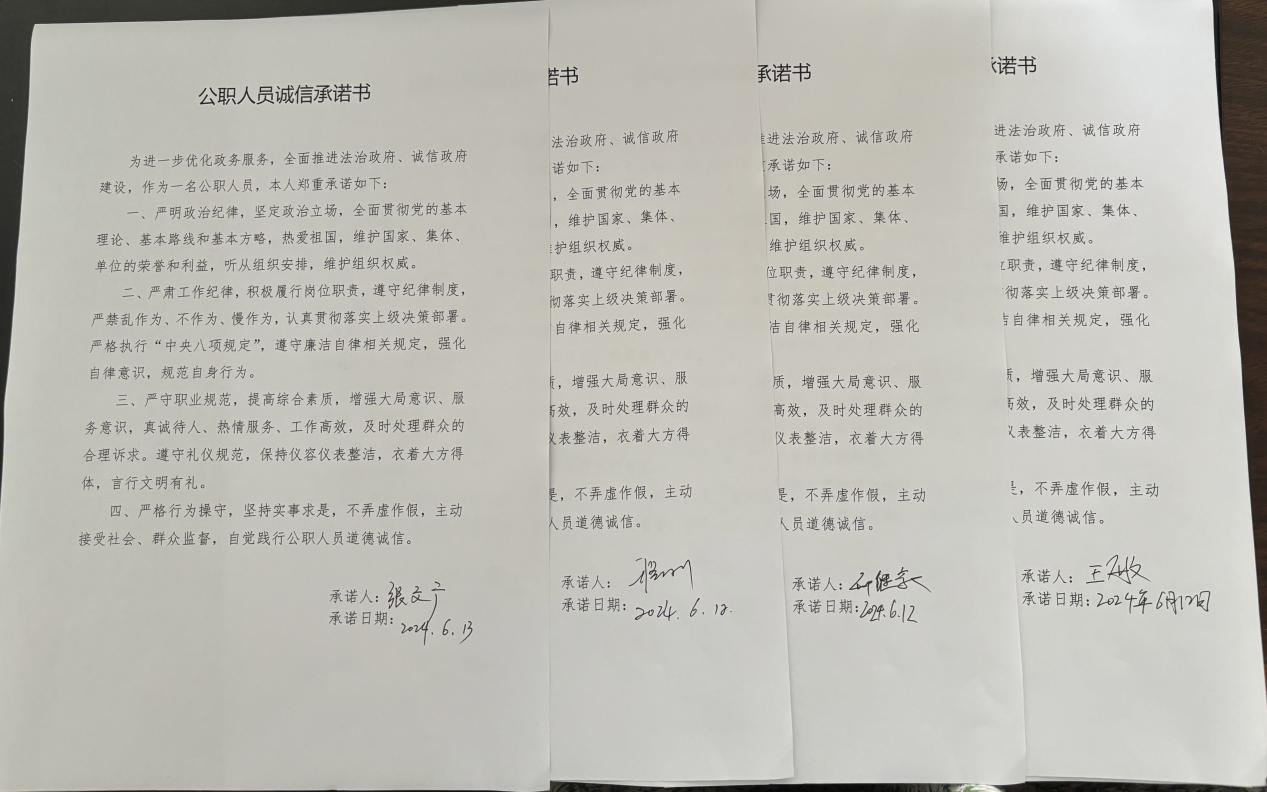 公职人员诚信承诺书
为进一步优化政务服务，全面推进法治政府、诚信政府
建设，作为一名公职人员，本人郑重承诺如下：
一、严明政治纪律，坚定政治立场，全面贯彻党的基本
理论、基本路线和基本方略，热爱祖国，维护国家、集体、
单位的荣誉和利益，听从组织安排，维护组织权威。
二、严肃工作纪律，积极履行岗位职责，遵守纪律制度，
严禁乱作为、不作为、慢作为，认真贯彻落实上级决策部署。
严格执行“中央八项规定”，遵守廉洁自律相关规定，强化
自律意识，规范自身行为。
三、严守职业规范，提高综合素质，增强大局意识、服
务意识，真诚待人、热情服务、工作高效，及时处理群众的
合理诉求。遵守礼仪规范，保持仪容仪表整洁，衣着大方得
体，言行文明有礼。
四、严格行为操守，坚持实事求是，不弄虚作假，主动
接受社会、群众监督，自觉践行公职人员道德诚信。
承诺人：张文广
承诺日期：2024.6.13
诺书
法治政府、诚信政府
诺如下：
，全面贯彻党的基本
，维护国家、集体、
护组织权威。
职责，遵守纪律制度，
彻落实上级决策部署。
自律相关规定，强化
质，增强大局意识、服
高效，及时处理群众的
仪表整洁，衣着大方得
是，不弄虚作假，主动
人员道德诚信。
承诺人：
承诺日期：2024.6.12.
承诺书
推进法治政府、诚信政府
承诺如下：
场，全面贯彻党的基本
国，维护国家、集体、
维护组织权威。
位职责，遵守纪律制度，
贯彻落实上级决策部署。
洁自律相关规定，强化
质，增强大局意识、服
高效，及时处理群众的
仪表整洁，衣着大方得
是，不弄虚作假，主动
人员道德诚信。
承诺人：
承诺日期：2024.6.12
承诺书
进法治政府、诚信政府
承诺如下：
场，全面贯彻党的基本
国，维护国家、集体、
维护组织权威。
位职责，遵守纪律制度，
彻落实上级决策部署。
自律相关规定，强化
质，增强大局意识、服
高效，及时处理群众的
仪表整洁，衣着大方得
是，不弄虚作假，主动
人员道德诚信。
承诺人：王
承诺日期：2024年6月12日